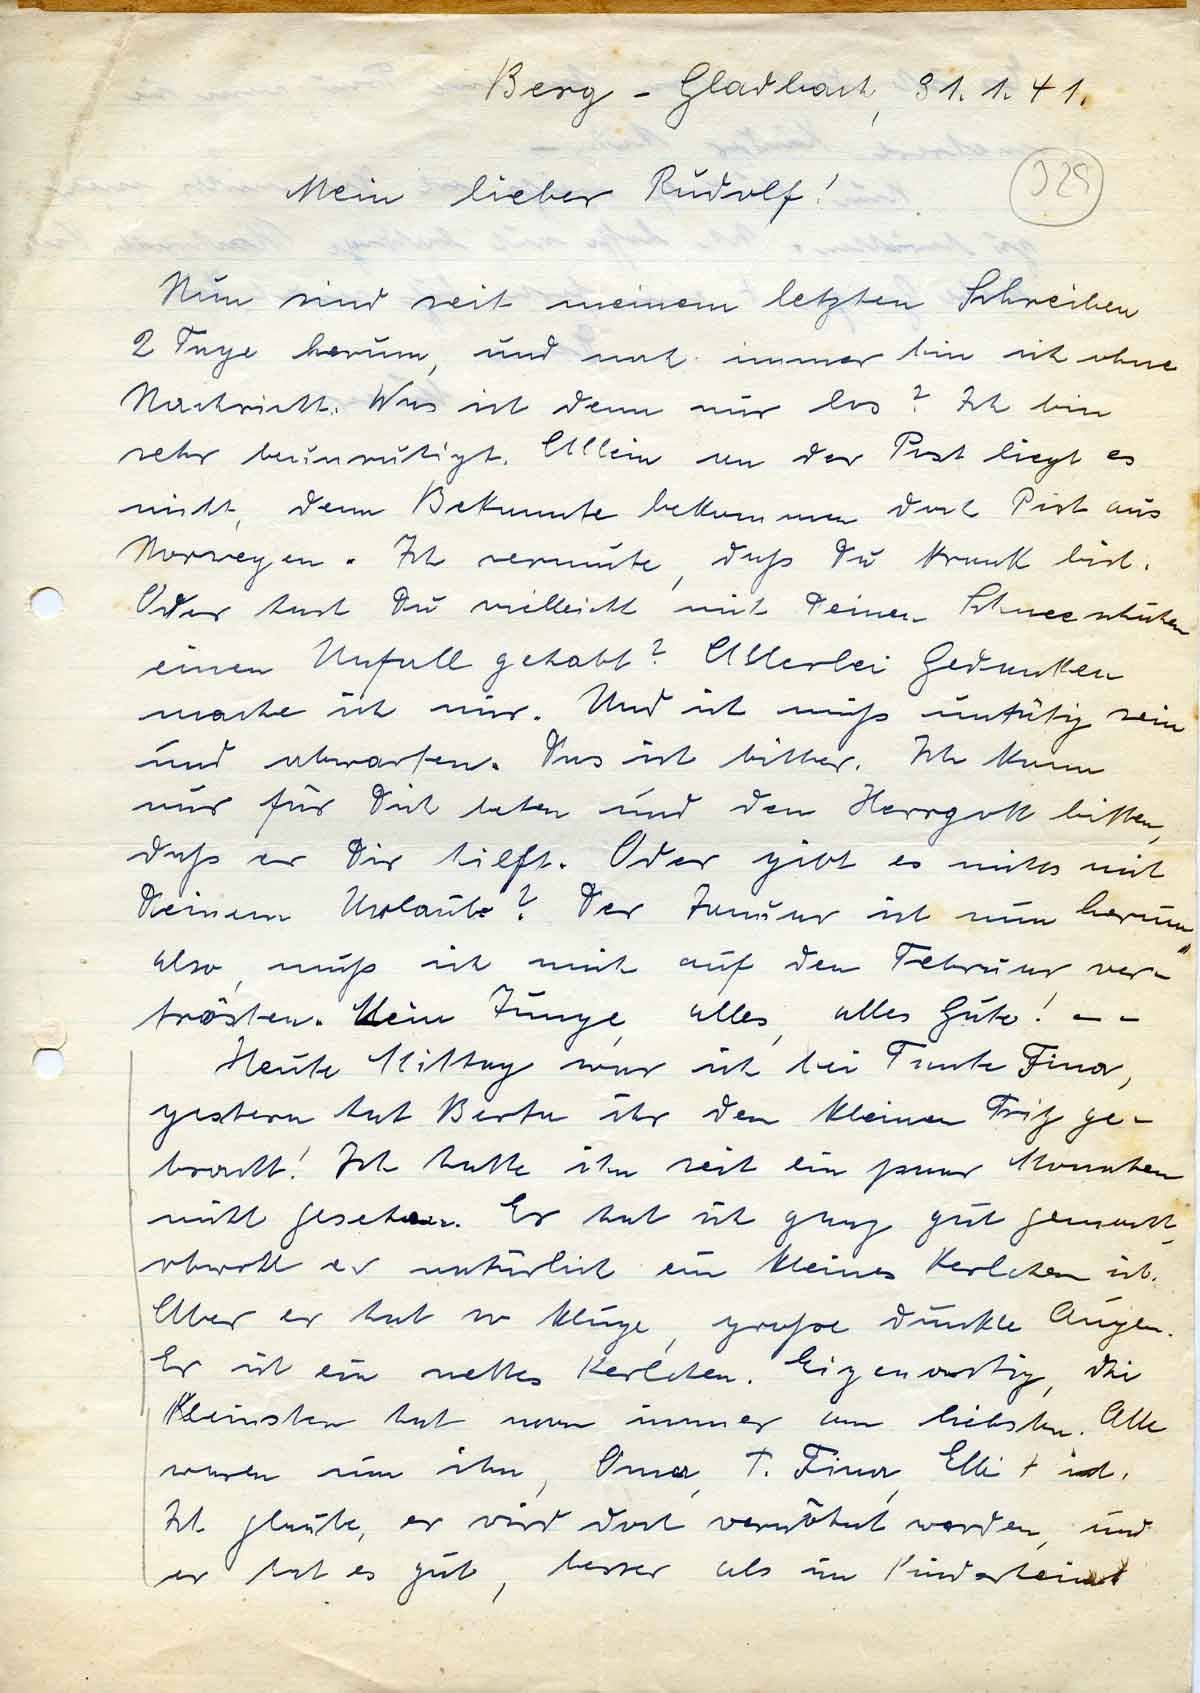 Berg-Gladbach, 31.1.41.
Mein lieber Rudolf!
Nun sind seit meinem letzten Schreiben
2 Tage herum, und noch immer bin ich ohne
Nachricht. Was ist denn nur los? Ich bin
sehr beunruhigt. Allein an der Post liegt es
nicht, denn Bekannte bekommen doch Post aus
Norwegen. Ich vermute, daß Du krank bist.
Oder hast Du vielleicht mit Deinen Schneeschuhen
einen Unfall gehabt? Allerlei Gedanken
mache ich mir. Und ich muß untätig sein
und abwarten. Das ist bitter. Ich kann
nur für Dich beten und den Herrgott bitten,
daß er Dir hilft. Oder gibt es nichts mit
Deinem Urlaub? Der Januar ist nun herum,
also, muß ich mich auf den Februar ver-
trösten. Mein Junge, alles, alles Gute! - -
Heute Mittag war ich bei Tante Fina,
gestern hat Berta ihr den kleinen Fritz ge-
bracht! Ich hatte ihn seit ein paar Monaten
nicht gesehen. Er hat sich ganz gut gemacht,
obwohl er natürlich ein kleines Kerlchen ist.
Aber er hat so kluge, große dunkle Augen.
Er ist ein nettes Kerlchen. Eigenartig, die
Kleinsten hat man immer am liebsten. Alle
waren um ihn, Oma, T. Fina, Elli + ich.
Ich glaube, er wird dort verwöhnt werden, und
er hat es gut, besser als im Kinderheim